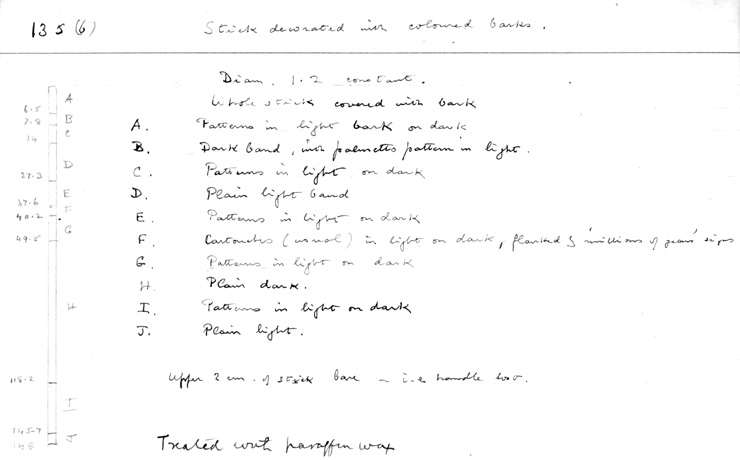 135 (6)
Stick decorated with coloured barks.
Diam. 1.2 constant.
Whole stick covered with bark
A. Patterns in light bark on dark
B. Dark band, with palmette pattern in light.
C. Patterns in light on dark
D. Plain light band
E. Patterns in light on dark
F. Cartouches (usual) in light on dark, flanked by 'millions of years' signs
G. Patterns in light on dark
H. Plain dark.
I. Patterns in light on dark
J. Plain light.
Upper 2 cm. of stick bare - i.e. handle lost.
Treated with paraffin wax
A
6.5
B
7.8
C
14
D
27.3
E
37.6
F
40.2
G
49.5
H
118.2
I
145.7
J
148